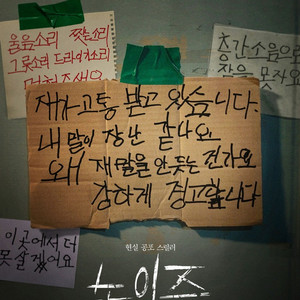 울음소리
층간소음으로
잠을 못자요
제가 고통 받고 있습니다.
내 말이 장난 같나요
왜 제말을 안듣는 건가요
강하게 경고합니다
이곳에서 더
못살겠어요
현실 공포 스릴러
노이즈